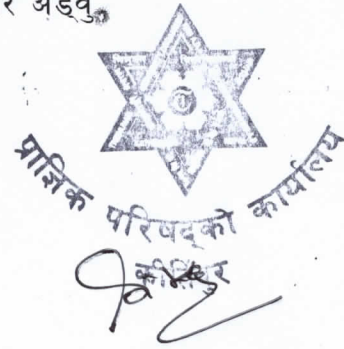 र अड्वु
प्राज्ञिक परिषद्को कार्यालय
कीर्तिपुर